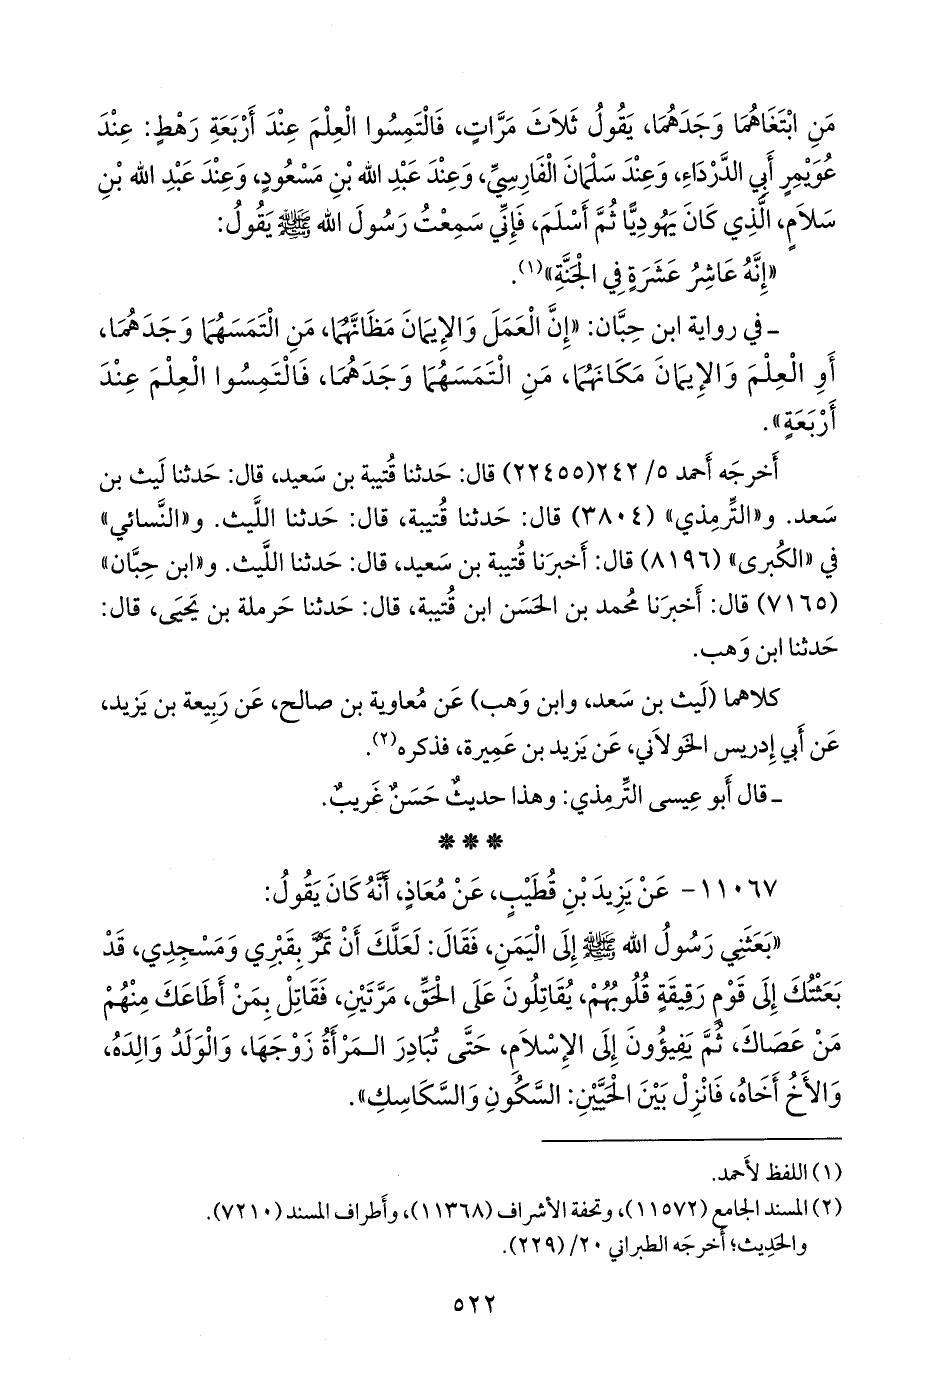 مَنِ ابْتَغَاهُمَا وَجَدَهُمَا، يَقُولُ ثَلاَثَ مَرَّاتٍ، فَالْتَمِسُوا الْعِلْمَ عِنْدَ أَرْبَعَةِ رَهْطٍ: عِنْدَ
عُوَيْمِرٍ أَبِي الدَّرْدَاءِ، وَعِنْدَ سَلْمَانَ الْفَارِسِيِّ، وَعِنْدَ عَبْدِ الله بْنِ مَسْعُودٍ، وَعِنْدَ عَبْدِ الله بْنِ
سَلاَمٍ، الَّذِي كَانَ يَهُودِيًّا ثُمَّ أَسْلَمَ، فَإِنِّي سَمِعْتُ رَسُولَ الله ﷺ يَقُولُ:
«إِنَّهُ عَاشِرُ عَشَرَةٍ فِي الْجَنَّةِ»(١).
ـ في رواية ابن حِبَّان: «إِنَّ الْعَمَلَ وَالإِيمَانَ مَظَانَّهُمَا، مَنِ الْتَمَسَهُمَا وَجَدَهُمَا،
أَوِ الْعِلْمَ وَالإِيمَانَ مَكَانَهُمَا، مَنِ الْتَمَسَهُمَا وَجَدَهُمَا، فَالْتَمِسُوا الْعِلْمَ عِنْدَ
أَرْبَعَةٍ».
أَخرجَه أَحمد ٥/ ٢٤٢(٢٢٤٥٥) قال: حَدثنا قُتيبة بن سَعيد، قال: حَدثنا لَيث بن
سَعد. و«التِّرمِذي» (٣٨٠٤) قال: حَدثنا قُتيبة، قال: حَدثنا اللَّيث. و«النَّسائي»
في «الكُبرى» (٨١٩٦) قال: أَخبرَنا قُتيبة بن سَعيد، قال: حَدثنا اللَّيث. و«ابن حِبَّان»
(٧١٦٥) قال: أَخبرَنا مُحمد بن الحَسَن ابن قُتيبة، قال: حَدثنا حَرملة بن يَحيَى، قال:
حَدثنا ابن وَهب.
كلاهما (لَيث بن سَعد، وابن وَهب) عَن مُعاوية بن صالح، عَن رَبيعة بن يَزيد،
عَن أَبي إِدريس الخَولاَني، عَن يَزيد بن عَميرة، فذكره(٢).
ـ قال أَبو عِيسى التِّرمِذي: وهذا حديثٌ حَسَنٌ غَريبٌ.
* * *
١١٠٦٧- عَنْ يَزِيدَ بْنِ قُطَيْبٍ، عَنْ مُعَاذٍ، أَنَّهُ كَانَ يَقُولُ:
«بَعَثَنِي رَسُولُ الله ﷺ إِلَى الْيَمَنِ، فَقَالَ: لَعَلَّكَ أَنْ تَمُرَّ بِقَبْرِي وَمَسْجِدِي، قَدْ
بَعَثْتُكَ إِلَى قَوْمٍ رَقِيقَةٍ قُلُوبُهُمْ، يُقَاتِلُونَ عَلَى الْحَقِّ، مَرَّتَيْنِ، فَقَاتِلْ بِمَنْ أَطَاعَكَ مِنْهُمْ
مَنْ عَصَاكَ، ثُمَّ يَفِيؤُونَ إِلَى الإِسْلاَمِ، حَتَّى تُبَادِرَ الْـمَرْأَةُ زَوْجَهَا، وَالْوَلَدُ وَالِدَهُ،
وَالأَخُ أَخَاهُ، فَانْزِلْ بَيْنَ الْحَيَّيْنِ: السَّكُونِ وَالسَّكَاسِكِ».
(١) اللفظ لأَحمد.
(٢) المسند الجامع (١١٥٧٢)، وتحفة الأشراف (١١٣٦٨)، وأَطراف المسند (٧٢١٠).
والحَدِيث؛ أَخرجَه الطبراني ٢٠/ (٢٢٩).
٥٢٢